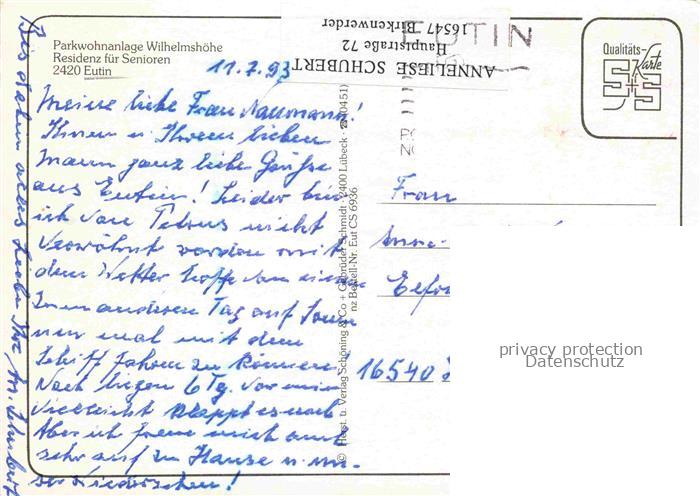 Parkwohnanlage Wilhelmshöhe
Residenz für Senioren
2420 Eutin
ANNELIESE SCHUBERT
Hauptstraße 72
16547 Birkenwerder
EUTIN
Qualitäts-
Karte
S+S
11.7.93
Meine liebe Frau
Ihnen u. Ihrem lieben
Mann ganz liebe Grüße
aus Eutin! Leider bin
ich von Petrus nicht
verwöhnt worden mit
dem Wetter hoffe von einem
zum anderen Tag auf Sonne
nun mal mit dem
Schiff fahren zu können!
Noch liegen 6 Tg. vor mir
vielleicht klappt es noch
Aber ich freue mich auch
sehr auf zu Hause u. un-
ser Wiedersehen!
Bis dahin alles Liebe Ihre
© Herst. u. Verlag Schöning & Co + Gebrüder Schmidt · 2400 Lübeck
nz Bestell-Nr. Eut CS 6936
Frau
Anne-
16540
privacy protection
Datenschutz